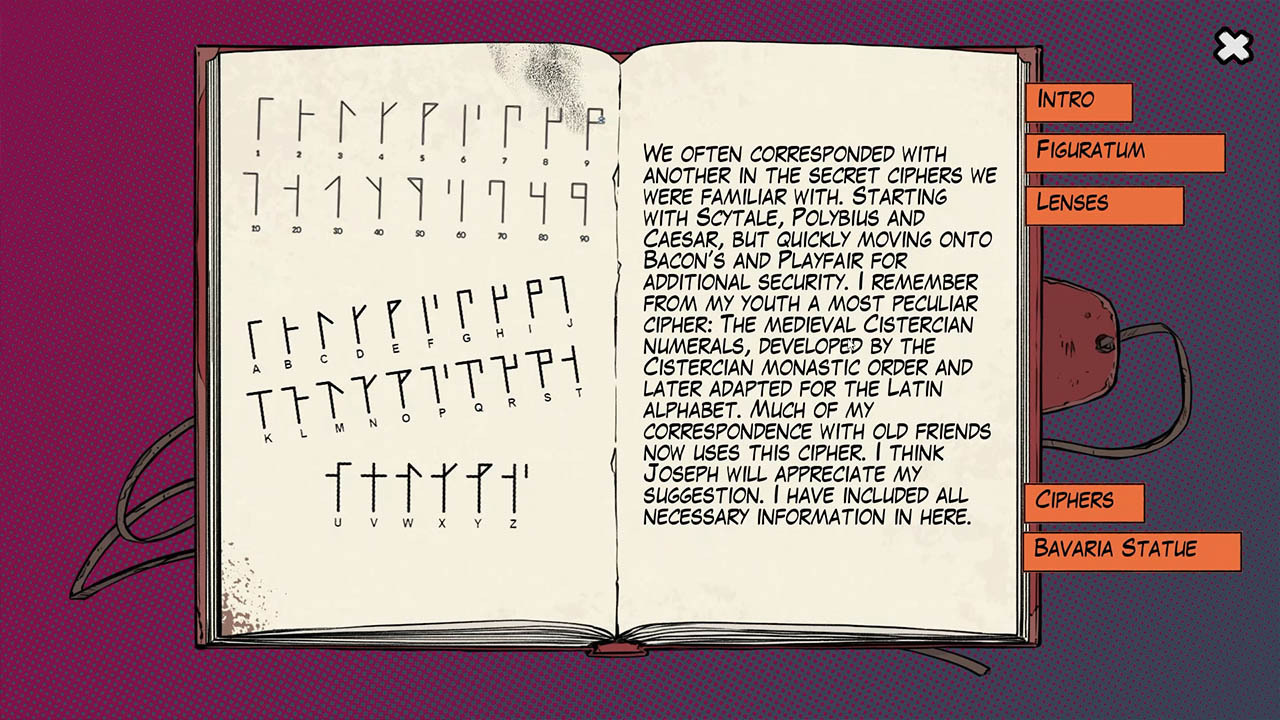 1 2 3 4 5 6 7 8 9
10 20 30 40 50 60 70 80 90
A B C D E F G H I J
K L M N O P Q R S T
U V W X Y Z
We often corresponded with
another in the secret ciphers we
were familiar with. Starting
with Scytale, Polybius and
Caesar, but quickly moving onto
Bacon's and Playfair for
additional security. I remember
from my youth a most peculiar
cipher: The medieval Cistercian
numerals, developed by the
Cistercian monastic order and
later adapted for the Latin
alphabet. Much of my
correspondence with old friends
now uses this cipher. I think
Joseph will appreciate my
suggestion. I have included all
necessary information in here.
Intro
Figuratum
Lenses
Ciphers
Bavaria Statue